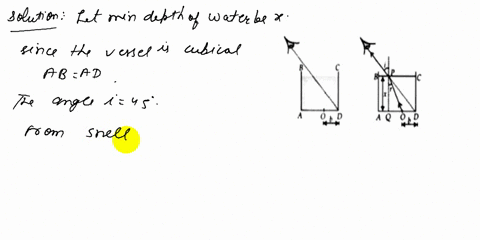 Solution: Let min depth of water be x.
since the vessel is cubical
AB = AD.
The angle i = 45°.
From snell
B C
A O D
B P C
i
r
x
A Q O D